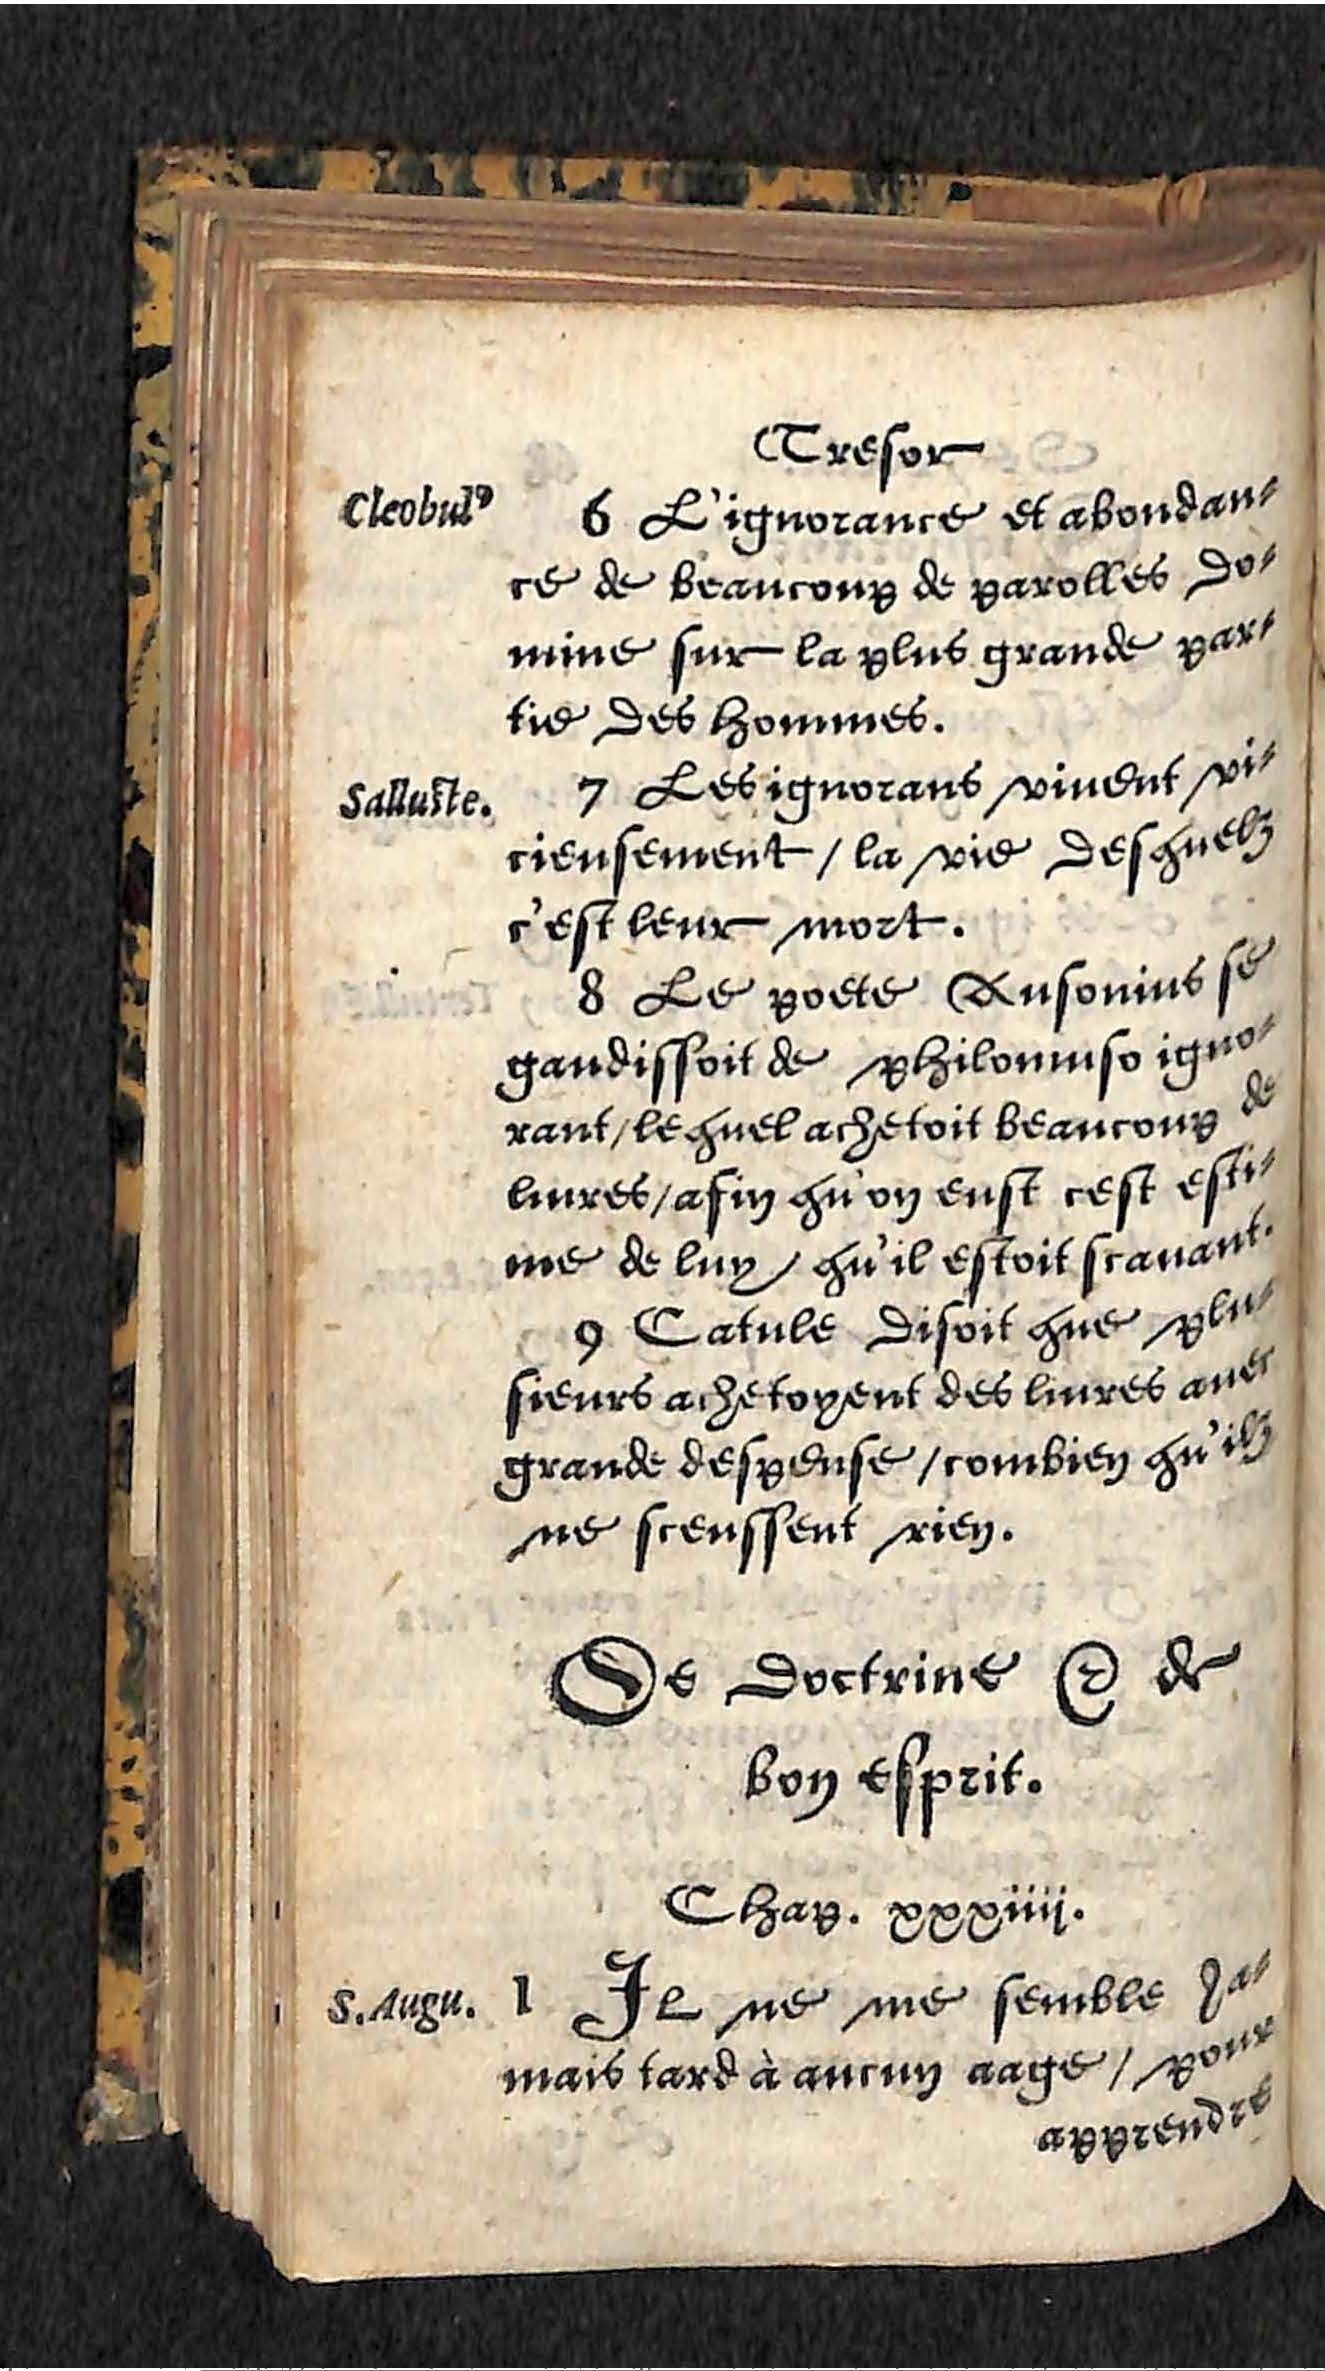 Tresor
Cleobulꝰ 6 L'ignorance et abondan-
ce de beaucoup de parolles do-
mine sur la plus grande par-
tie des hommes.
Salluste. 7 Les ignorans viuent vi-
cieusement / la vie desquelz
c'est leur mort.
8 Le poete Ausonius se
gaudissoit de philomuso igno-
rant / lequel achetoit beaucoup de
liures / afin qu'on eust cest esti-
me de luy / qu'il estoit scauant.
9 Catule disoit que plu-
sieurs achetoyent des liures auec
grande despense / combien qu'ilz
ne sceussent rien.
De doctrine & de
bon esprit.
Chap. xxxiiii.
S. Augu. 1 Il ne me semble Ja-
mais tard à aucun aage / pour
apprendre